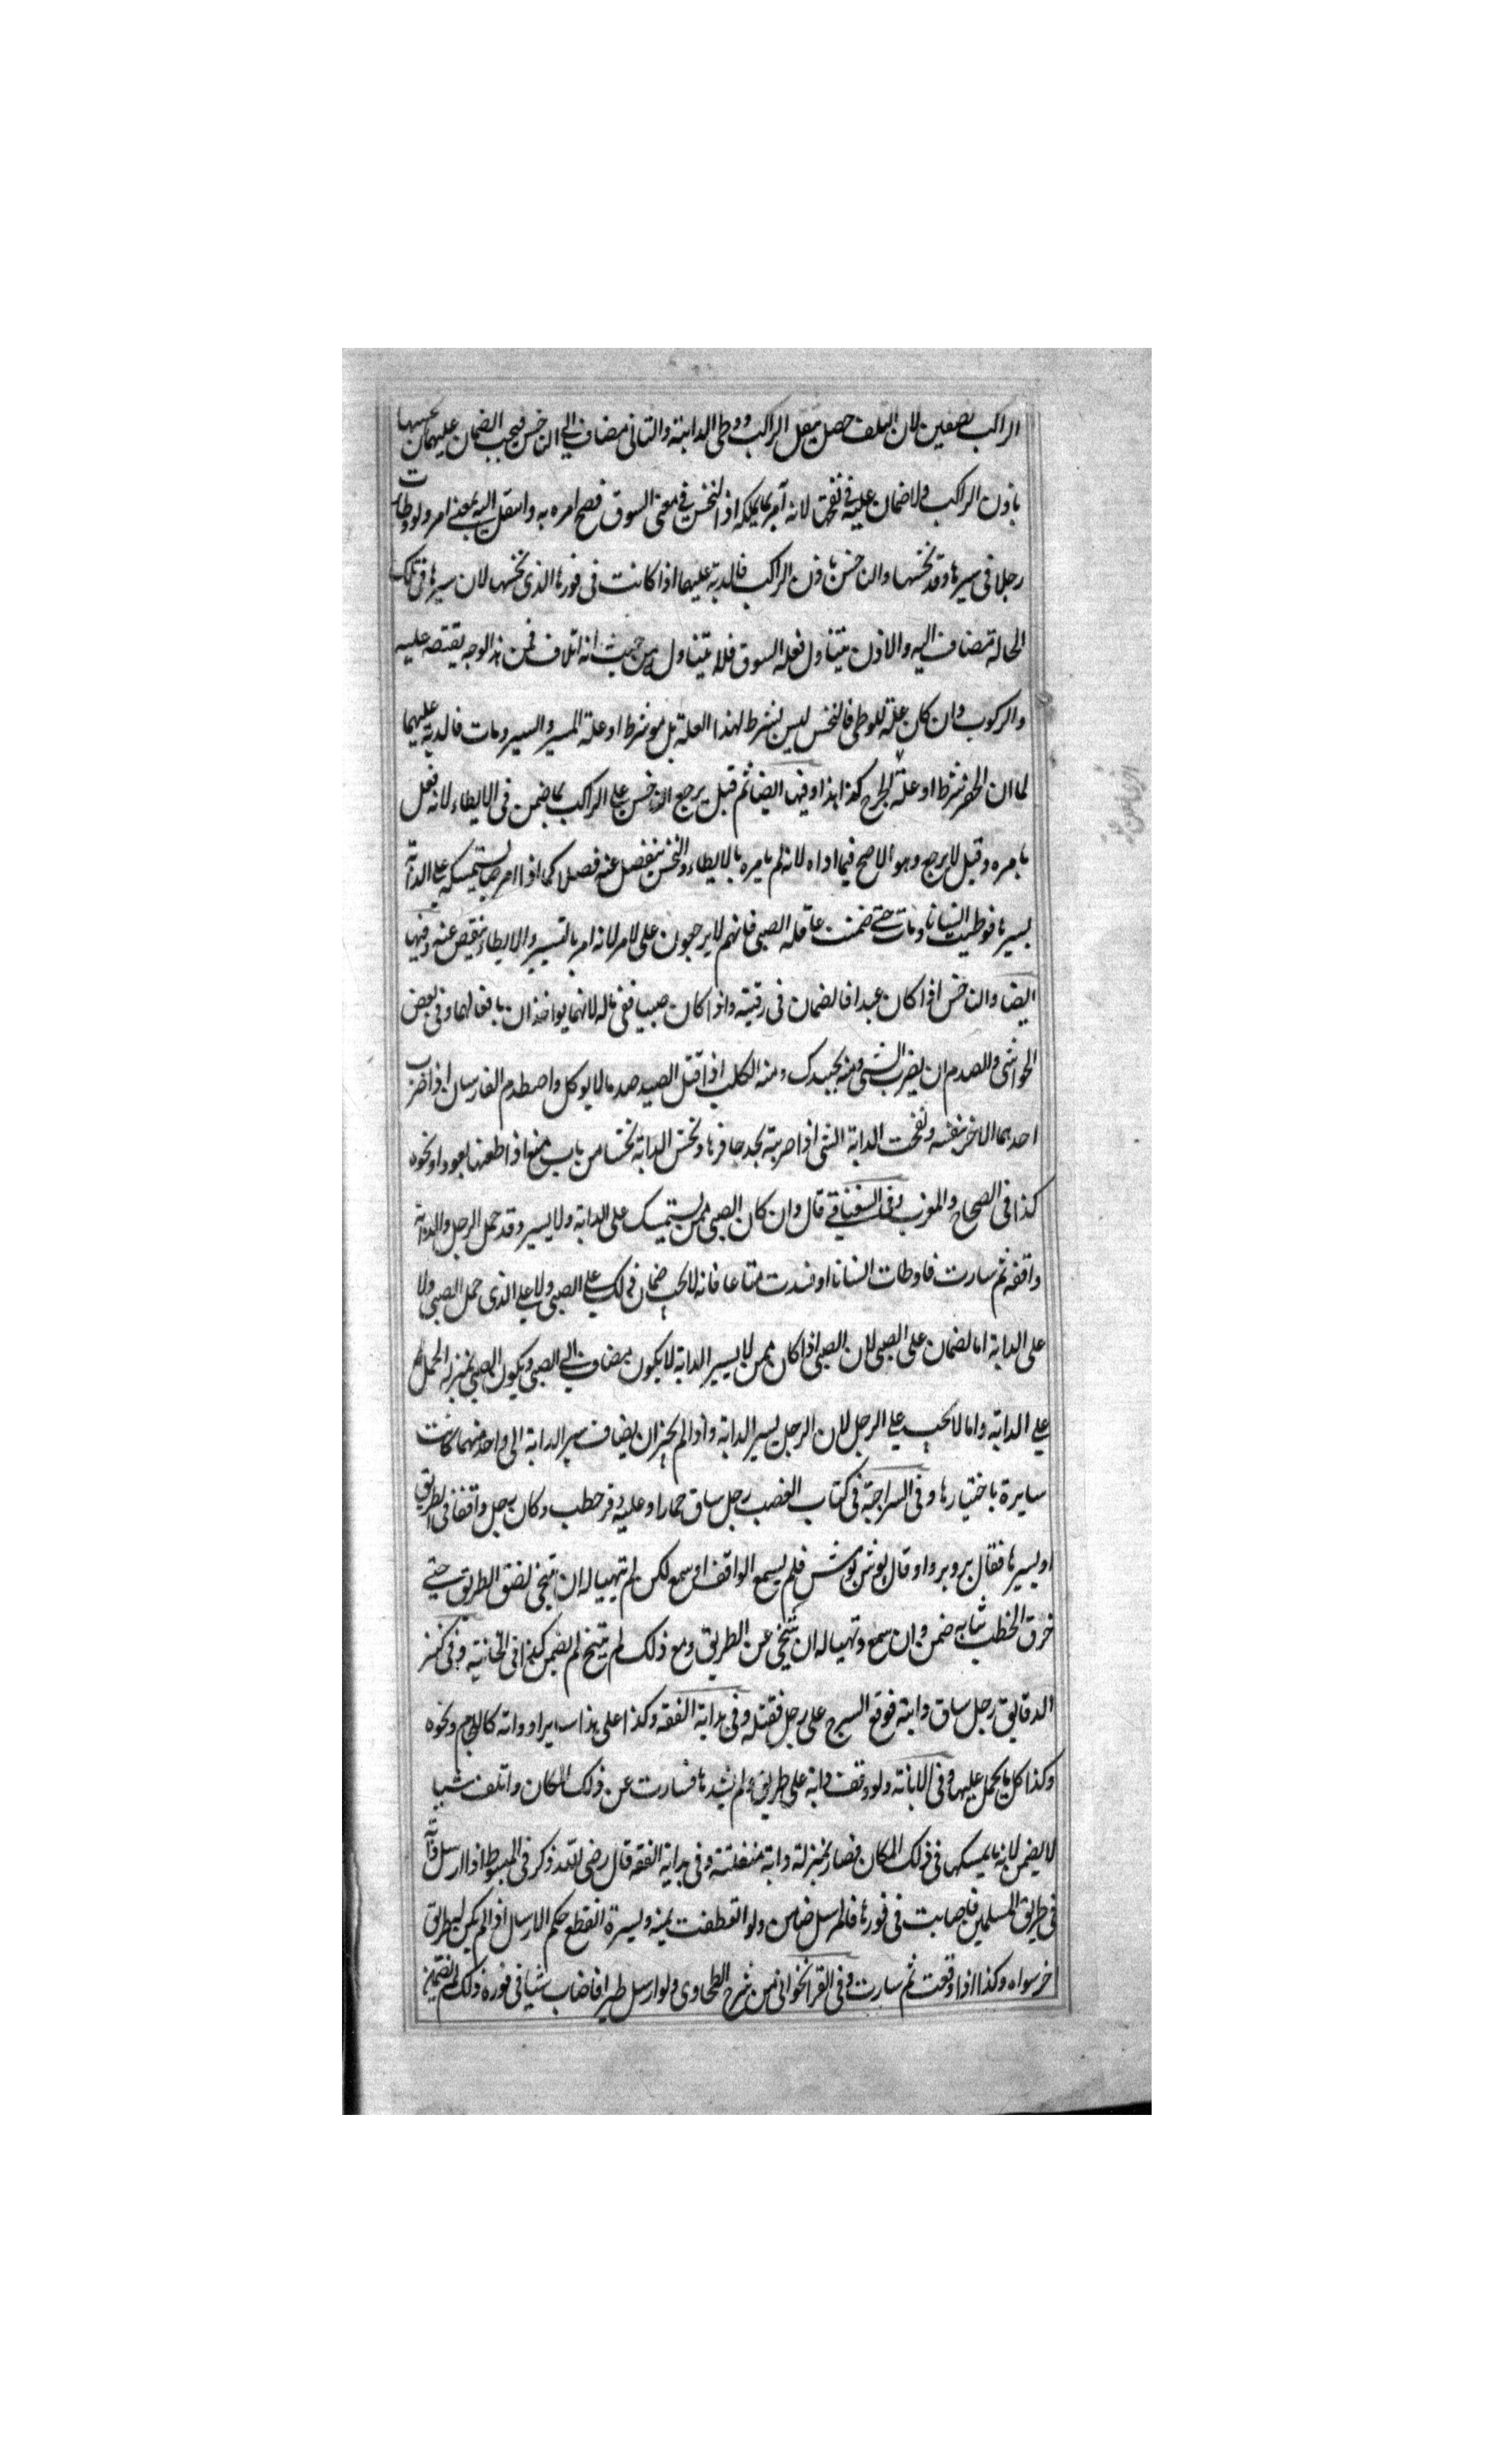 الراكب نصفين لان التلف حصل بثقل الراكب ووطى الدابة والثانى مضاف الى الناخس فيجب الضمان عليهما نخسها
باذن الراكب ولا ضمان عليه فى نفحتها لانه امر بما يملكه اذ النخس فى معنى السوق فصح امره به وانتقل اليه بمعنى امر ولو وطات
رجلا فى سيرها وقد نخسها والناخس باذن الراكب فالدية عليهما اذا كانت فى فورها الذى نخسها لان سيرها فى تلك
الحالة مضاف اليه والاذن يتناول فعله السوق فلا يتناول من حيث انه اتلاف فمن هذا الوجه يقتصر عليه
والركوب وان كان علة للوطى فالنخس ليس بشرط لهذا العلة بل هو شرط او علة المسير والسير ومات فالدية عليهما
لما ان الحفر شرط او علة الجرح كذا هذا وفيها ايضا ثم قيل يرجع الناخس على الراكب بما ضمن فى الايطاء لانه فعل
بامره وقيل لا يرجع وهو الاصح فيما اداه لانه لم يامره بالايطاء والنخس ينفصل عنه فصل كما اذا امر صبيا يستمسك على الدابة
بسيرها فوطئت انسانا ومات حتى ضمنت عاقلة الصبى فانهم لا يرجعون على الامر لانه امر بالتسيير والايطاء ينفصل عنه وفيها
ايضا والناخس اذا كان عبدا فالضمان فى رقبته واذا كان صبيا ففى ماله لانهما يواخذان بافعالهما وفى بعض
الحواشى والصدم ان يضرب الشى ومنه بجسدك ومنه الكلب اذا قتل الصيد صدما لا يوكل واصطدم الفارسان اذا ضرب
احدهما الاخر بنفسه ونفحت الدابة الشى اذا ضربته بحد حافرها ونخس الدابة نخسا من باب منع اذا طعنها بعود او نحوه
كذا فى الصحاح والمغرب وفى السغناقى قال وان كان الصبى ممن يستمسك على الدابة ولا يسير وقد حمل الرجل والدابة
واقفة ثم سارت فاوطات انسانا او فسدت متاعا فانه لا يجب ضمان ذلك على الصبى ولا على الذى حمل الصبى ولا
على الدابة اما لضمان على الصبى لان الصبى اذا كان ممن لا يسير الدابة لا يكون بمضاف الى الصبى ويكون الصبى بمنزلة الحمل
على الدابة واما لا يجب على الرجل لان الرجل يسير الدابة واذا لم يجز ان يضاف سير الدابة الى واحد منهما كانت
سايرة باختيارها وفى السراجية فى كتاب الغصب رجل ساق حمارا وعليه وقر حطب وكان رجل واقفا فى الطريق
او يسير ها فقال برو برو او قال بوش بوش فلم يسمع الواقف او سمع لكن لم يتهيا له ان يتنحى لضيق الطريق حتى
خرق الحطب ثيابه ضمن وان سمع وتهيا له ان يتنحى عن الطريق ومع ذلك لم يتنح لم يضمن كذا فى الخانية وفى كنز
الدقايق رجل ساق دابة فوقع السرج على رجل فقتله وفى هداية الفقه وكذا على هذا ساير ادواته كاللجام ونحوه
وكذا كل ما يحمل عليها وفى الابانة ولو وقف دابة على طريق ولم يشدها فسارت عن ذلك المكان واتلف شيا
لا يضمن لانه ما يمسكها فى ذلك المكان فصار بمنزلة دابة منفلتة وفى هداية الفقه قال رضى الله ذكر فى المبسوط اذا ارسل دابة
فى طريق المسلمين فاصابت فى فورها فالمرسل ضامن ولو انعطفت يمنة ويسرة انقطع حكم الارسال اذا لم يكن لطريق
اخر سواه وكذا اذا وقفت ثم سارت وفى القراخوانى من شرح الطحاوى ولو ارسل طيرا فاصاب شيا فى فوره ذلك لم يضمن